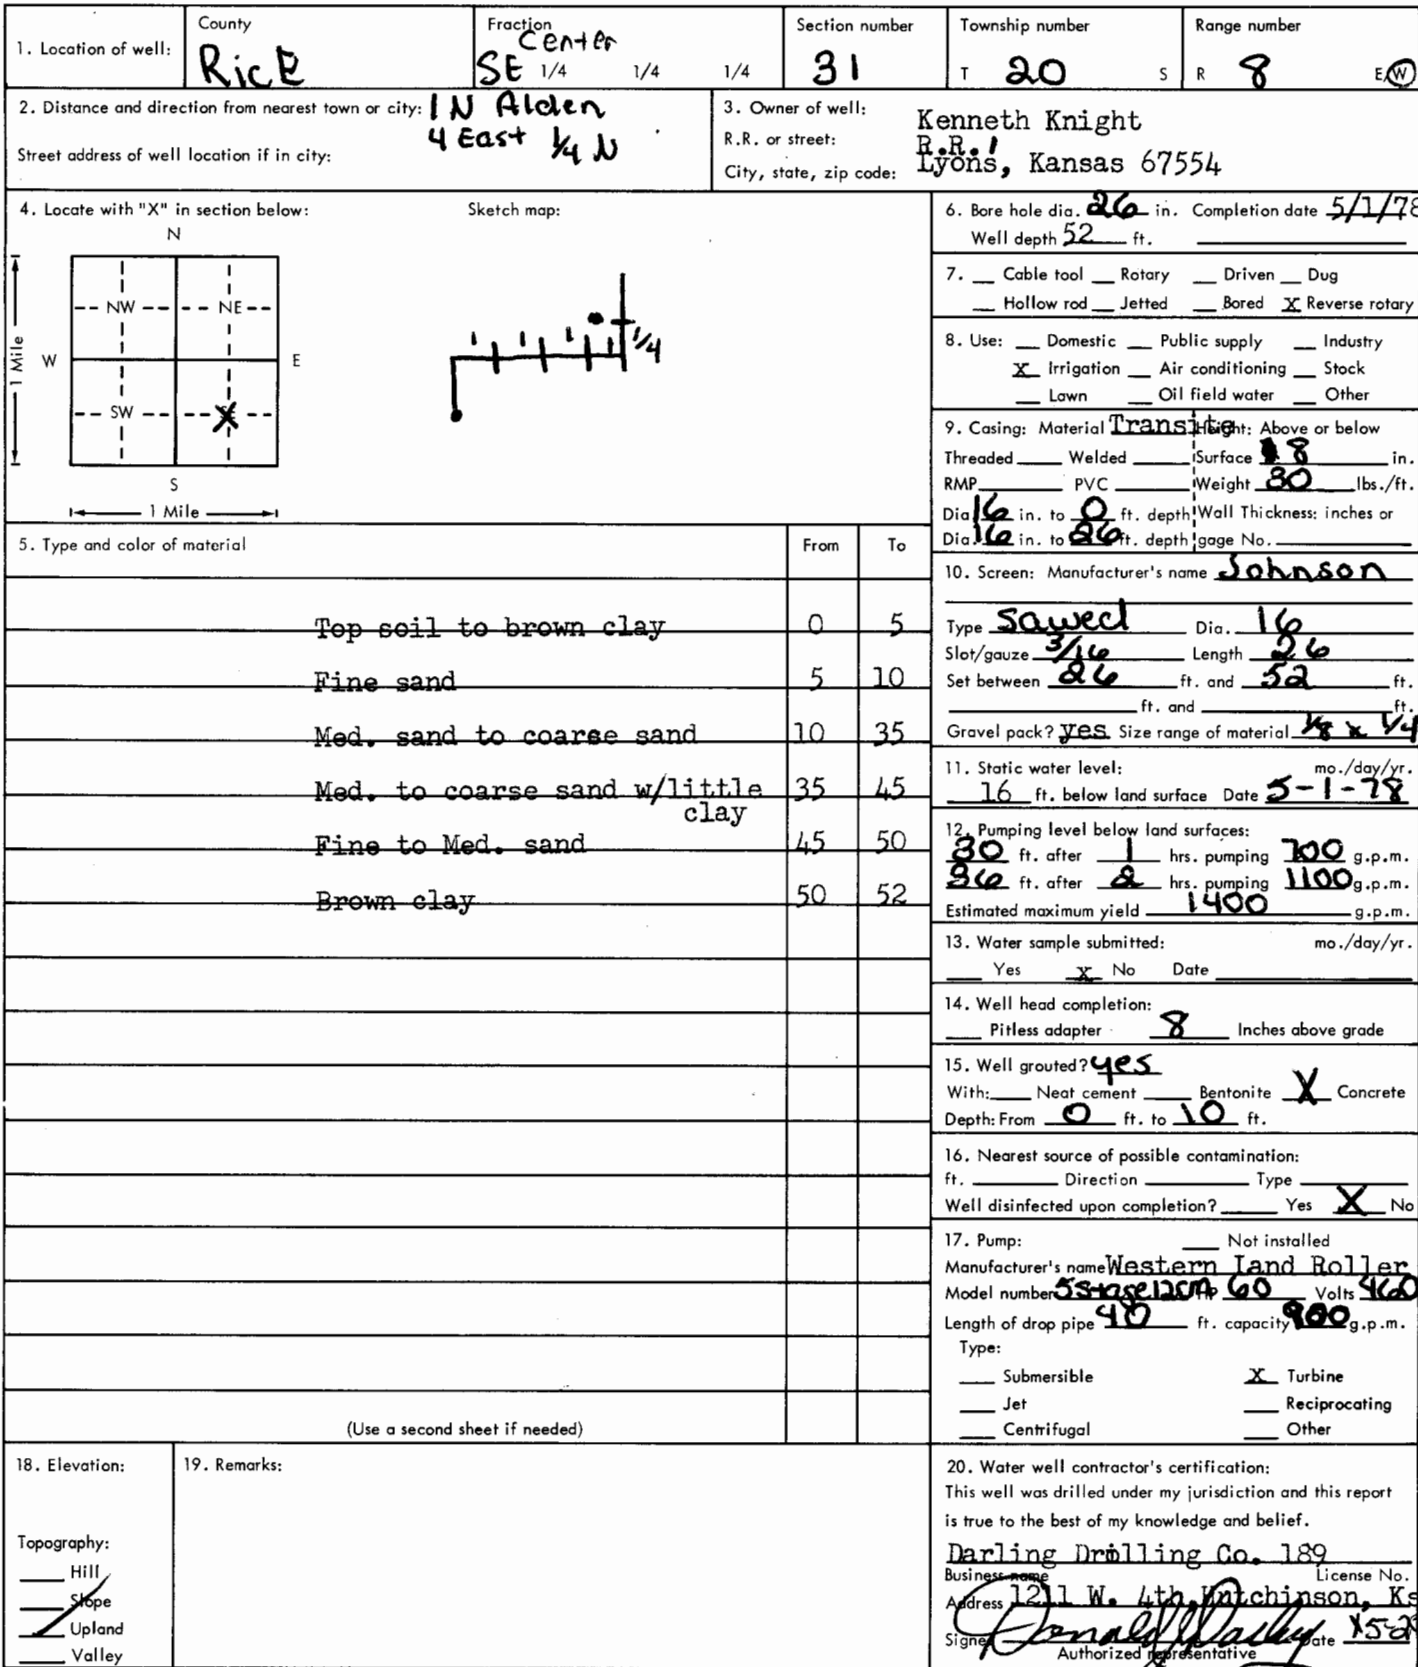 1. Location of well: County Rice Fraction Center SE 1/4 1/4 1/4 Section number 31 Township number T 20 S Range number R 8 E/W
2. Distance and direction from nearest town or city: 1 N Alden
4 East 1/4 N
Street address of well location if in city:
3. Owner of well: Kenneth Knight
R.R. or street: R.R. 1
City, state, zip code: Lyons, Kansas 67554
4. Locate with "X" in section below: Sketch map:
N
NW NE
W E
SW X
S
1 Mile
1 Mile
1 1 1 1 1/4
5. Type and color of material From To
Top soil to brown clay 0 5
Fine sand 5 10
Med. sand to coarse sand 10 35
Med. to coarse sand w/little clay 35 45
Fine to Med. sand 45 50
Brown clay 50 52
(Use a second sheet if needed)
6. Bore hole dia. 26 in. Completion date 5/1/78
Well depth 52 ft.
7. Cable tool Rotary Driven Dug
Hollow rod Jetted Bored X Reverse rotary
8. Use: Domestic Public supply Industry
X Irrigation Air conditioning Stock
Lawn Oil field water Other
9. Casing: Material Transite Height: Above or below
Threaded Welded Surface 8 in.
RMP PVC Weight 30 lbs./ft.
Dia 16 in. to 0 ft. depth Wall Thickness: inches or
Dia. 16 in. to 26 ft. depth gage No.
10. Screen: Manufacturer's name Johnson
Type Sawed Dia. 16
Slot/gauze 3/16 Length 26
Set between 26 ft. and 52 ft.
ft. and ft.
Gravel pack? yes Size range of material 1/8 x 1/4
11. Static water level: mo./day/yr.
16 ft. below land surface Date 5-1-78
12. Pumping level below land surfaces:
30 ft. after 1 hrs. pumping 700 g.p.m.
36 ft. after 2 hrs. pumping 1100 g.p.m.
Estimated maximum yield 1400 g.p.m.
13. Water sample submitted: mo./day/yr.
Yes X No Date
14. Well head completion:
Pitless adapter 8 Inches above grade
15. Well grouted? yes
With: Neat cement Bentonite X Concrete
Depth: From 0 ft. to 10 ft.
16. Nearest source of possible contamination:
ft. Direction Type
Well disinfected upon completion? Yes X No
17. Pump: Not installed
Manufacturer's name Western Land Roller
Model number 5 Stage 12CM HP 60 Volts 460
Length of drop pipe 40 ft. capacity 900 g.p.m.
Type:
Submersible X Turbine
Jet Reciprocating
Centrifugal Other
18. Elevation:
Topography:
Hill
Slope
Upland
Valley
19. Remarks:
20. Water well contractor's certification:
This well was drilled under my jurisdiction and this report
is true to the best of my knowledge and belief.
Darling Drilling Co. 189
Business name License No.
Address 1211 W. 4th, Hutchinson, Ks
Signed Date
Authorized representative